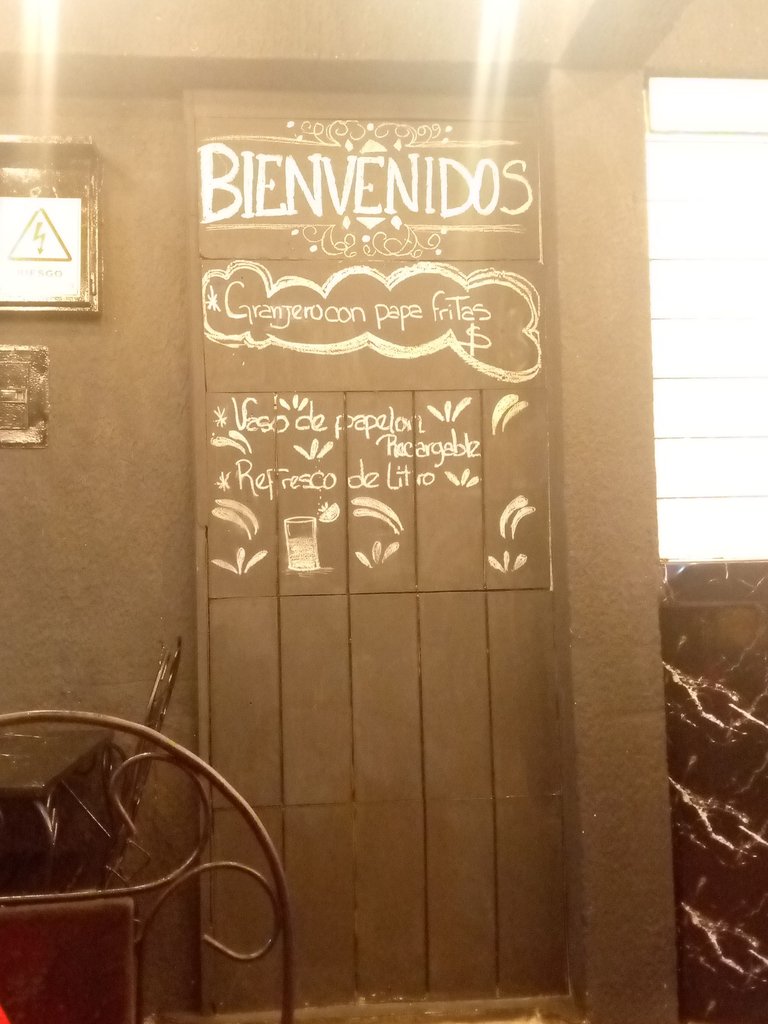 BIENVENIDOS
* Granjero con papa friTas
$
* Vaso de papelon
Recargable
* Refresco de Litro
RIESGO